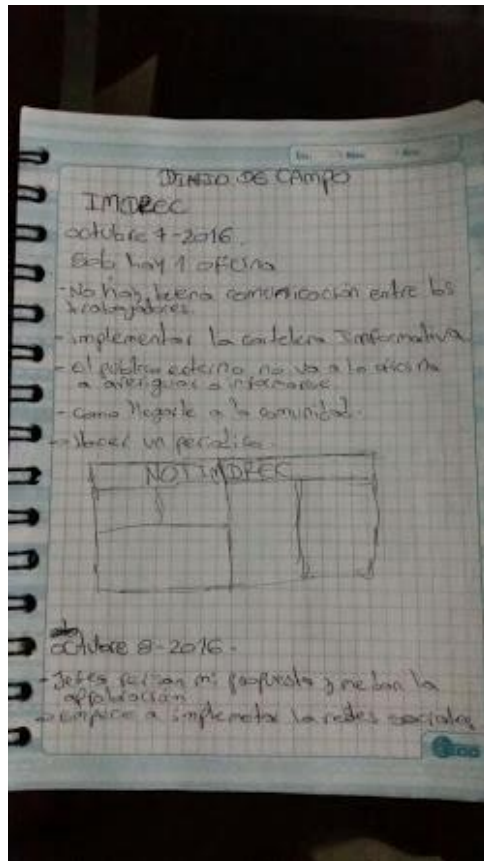 DIARIO DE CAMPO
IMDREC
octubre 7-2016.
Solo hay 1 oficina
- No hay buena comunicación entre los
trabajadores.
- implementar la cartelera Informativa
- el público externo no va a la oficina
a averiguar o informarse.
- como llegarle a la comunidad.
- Hacer un periodico.
NOTIMDREC
octubre 8-2016.
- Jefes revisan mi propuesta y me dan la
aprobación
- empece a implemetar la redes sociales